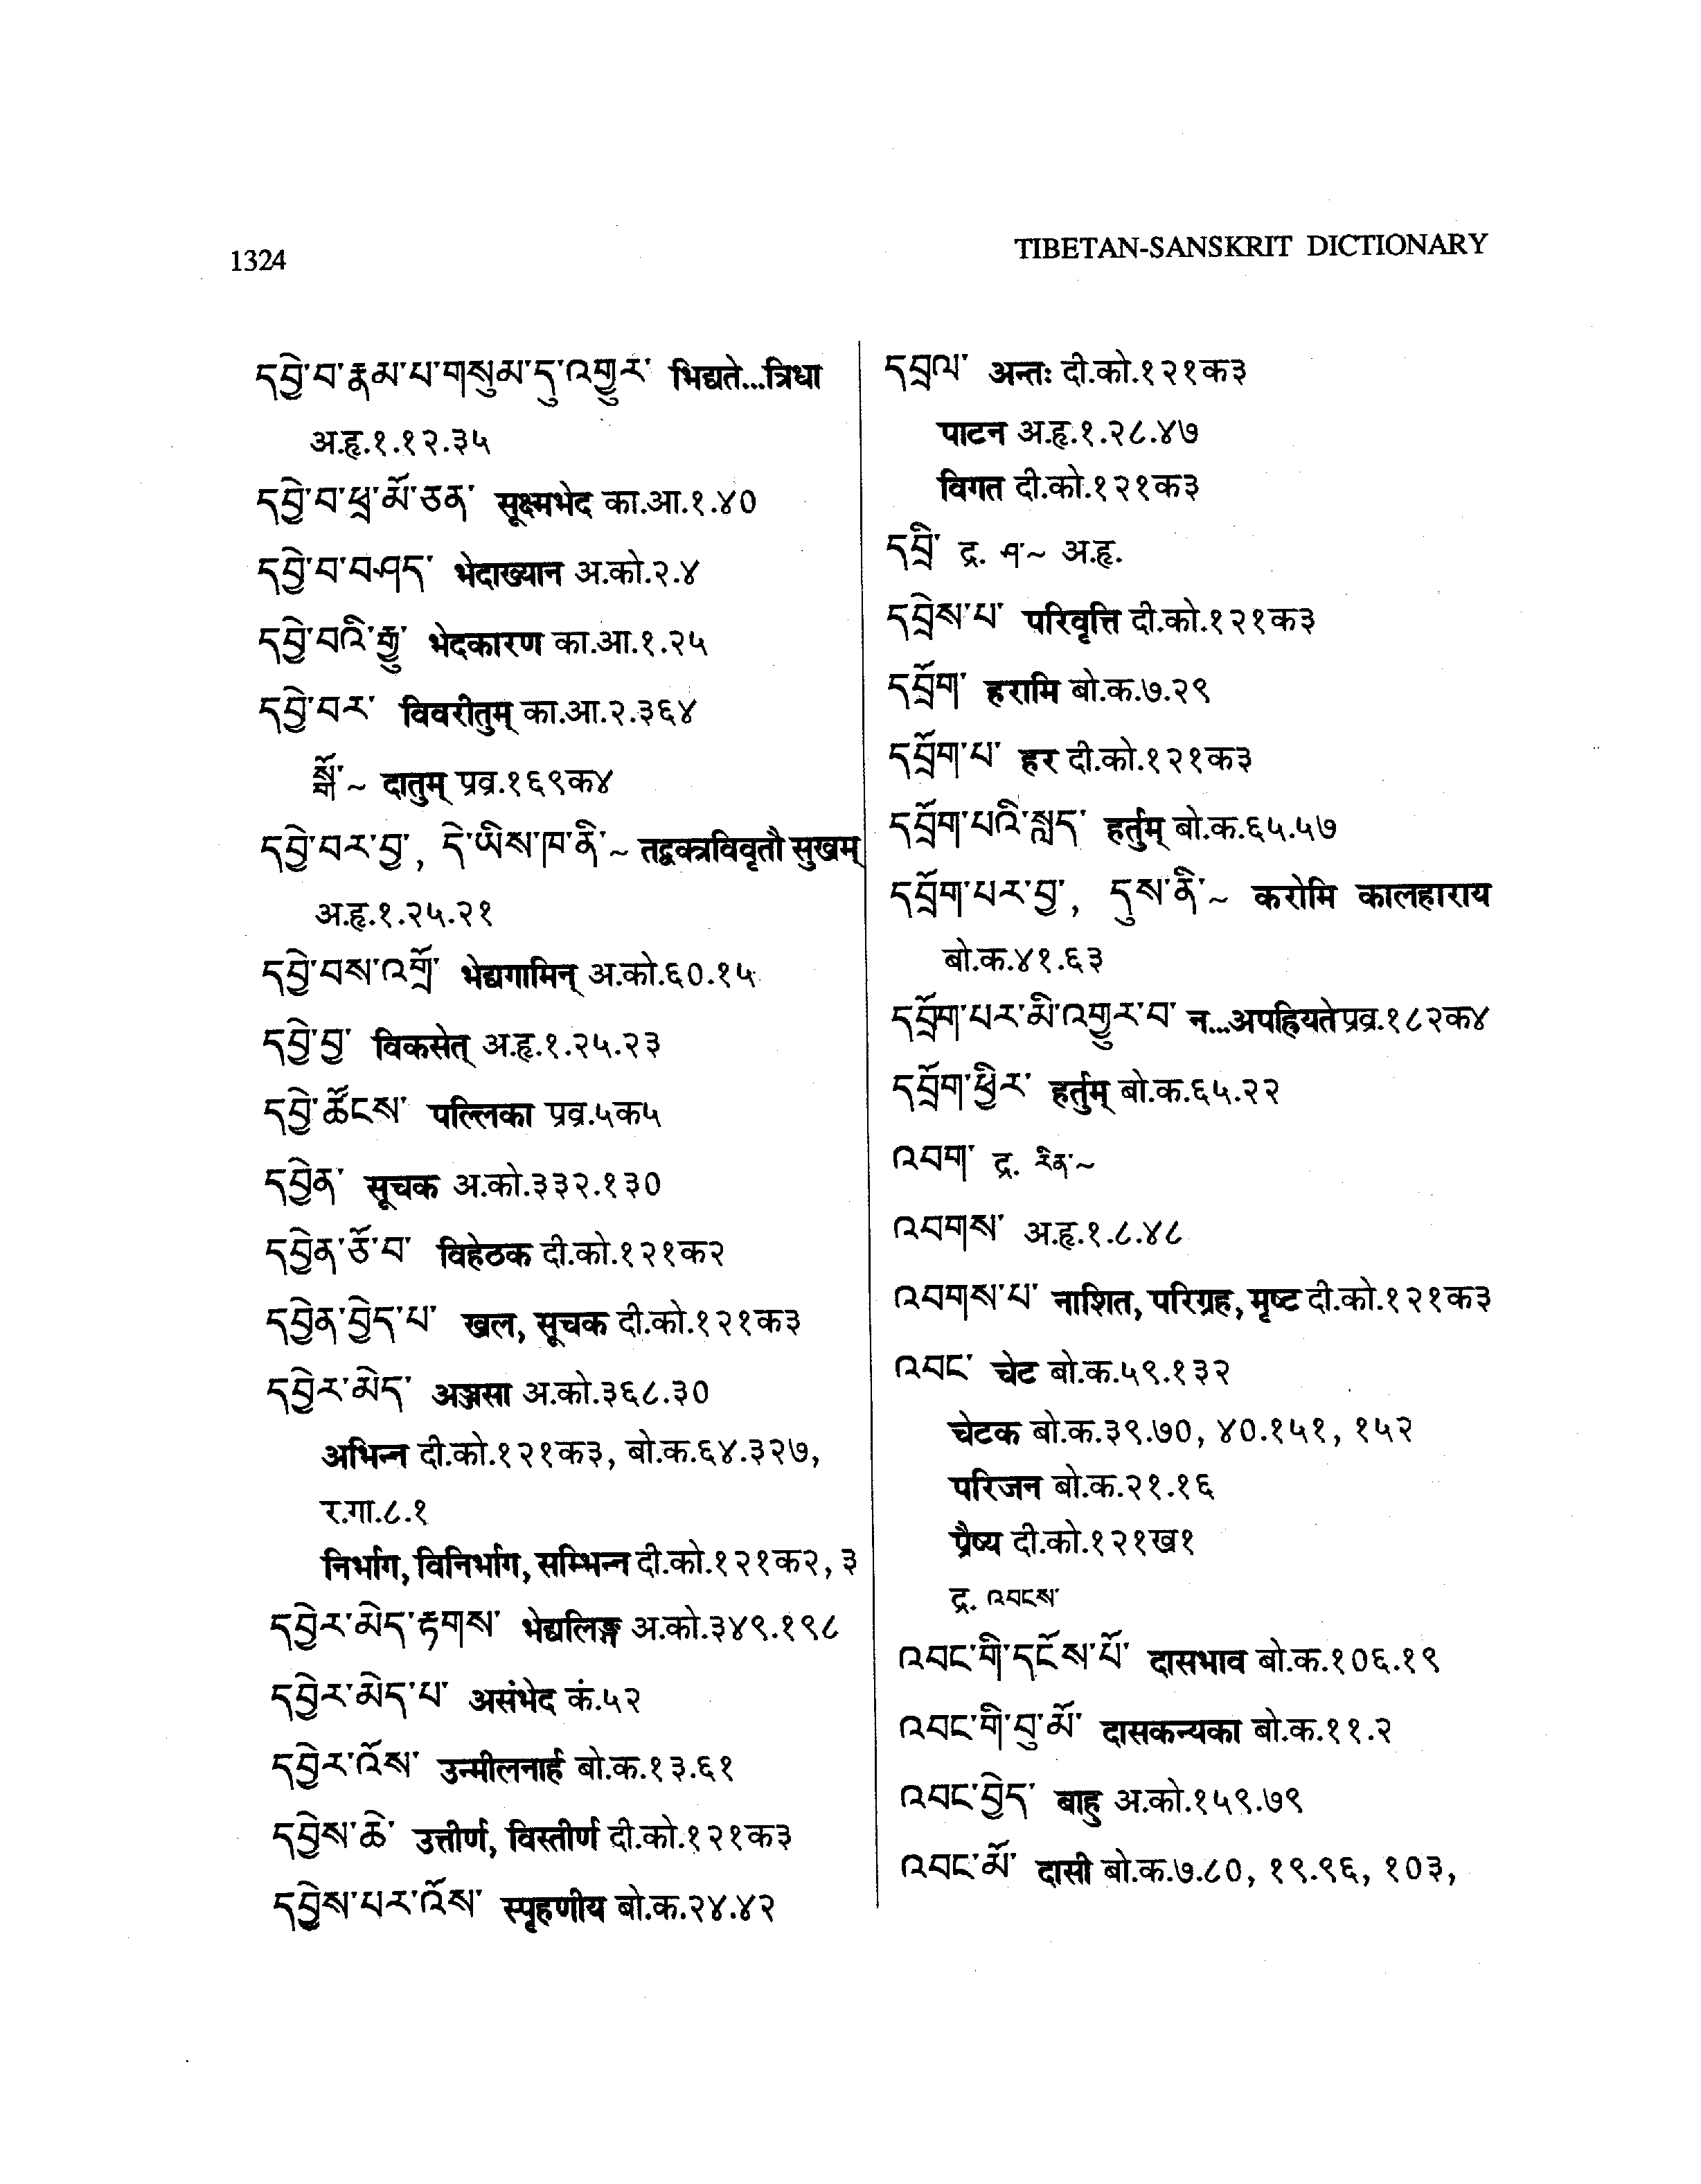 1324
TIBETAN-SANSKRIT DICTIONARY
དབྱེ་བ་རྣམ་པ་གསུམ་དུ་འགྱུར་ भिद्यते...त्रिधा
अ.हृ.१.१२.३५
དབྱེ་བ་ཕྲ་མོ་ཅན་ सूक्ष्मभेद का.आ.१.४०
དབྱེ་བ་བཤད་ भेदाख्यान अ.को.२.४
དབྱེ་བའི་རྒྱུ་ भेदकारण का.आ.१.२५
དབྱེ་བར་ विवरीतुम् का.आ.२.३६४
སྒོ་~ दातुम् प्रव्र.१६९क४
དབྱེ་བར་བྱ་, དེ་ཡིས་ཁ་ནི་~ तद्वक्त्रविवृतौ सुखम्
अ.हृ.१.२५.२१
དབྱེ་བས་འགྲོ་ भेद्यगामिन् अ.को.६०.१५
དབྱེ་བྱ་ विकसेत् अ.हृ.१.२५.२३
དབྱེ་ཚོངས་ पल्लिका प्रव्र.५क५
དབྱེན་ सूचक अ.को.३३२.१३०
དབྱེན་ཅོ་བ་ विहेठक दी.को.१२१क२
དབྱེན་བྱེད་པ་ खल, सूचक दी.को.१२१क३
དབྱེར་མེད་ अञ्जसा अ.को.३६८.३०
अभिन्न दी.को.१२१क३, बो.क.६४.३२७,
र.गा.८.१
निर्भाग, विनिर्भाग, सम्भिन्न दी.को.१२१क२, ३
དབྱེར་མེད་རྟགས་ भेद्यलिङ्ग अ.को.३४९.१९८
དབྱེར་མེད་པ་ असंभेद कं.५२
དབྱེར་འོས་ उन्मीलनार्ह बो.क.१३.६१
དབྱེས་ཆེ་ उत्तीर्ण, विस्तीर्ण दी.को.१२१क३
དབྱེས་པར་འོས་ स्पृहणीय बो.क.२४.४२
དབྲལ་ अन्तः दी.को.१२१क३
पाटन अ.हृ.१.२८.४७
विगत दी.को.१२१क३
དབྲི་ द्र. ཤ་~ अ.हृ.
དབྲེས་པ་ परिवृत्ति दी.को.१२१क३
དབྲོག་ हरामि बो.क.७.२९
དབྲོག་པ་ हर दी.को.१२१क३
དབྲོག་པའི་སླད་ हर्तुम् बो.क.६५.५७
དབྲོག་པར་བྱ་, དུས་ནི་~ करोमि कालहाराय
बो.क.४१.६३
དབྲོག་པར་མི་འགྱུར་བ་ न...अपह्रियते प्रव्र.१८२क४
དབྲོག་ཕྱིར་ हर्तुम् बो.क.६५.२२
འབག་ द्र. རིན་~
འབགས་ अ.हृ.१.८.४८
འབགས་པ་ नाशित, परिग्रह, मृष्ट दी.को.१२१क३
འབང་ चेट बो.क.५९.१३२
चेटक बो.क.३९.७०, ४०.१५१, १५२
परिजन बो.क.२१.१६
प्रैष्य दी.को.१२१ख१
द्र. འབངས་
འབང་གི་དངོས་པོ་ दासभाव बो.क.१०६.१९
འབང་གི་བུ་མོ་ दासकन्यका बो.क.११.२
འབང་བྱེད་ बाहु अ.को.१५९.७९
འབང་མོ་ दासी बो.क.७.८०, १९.९६, १०३,